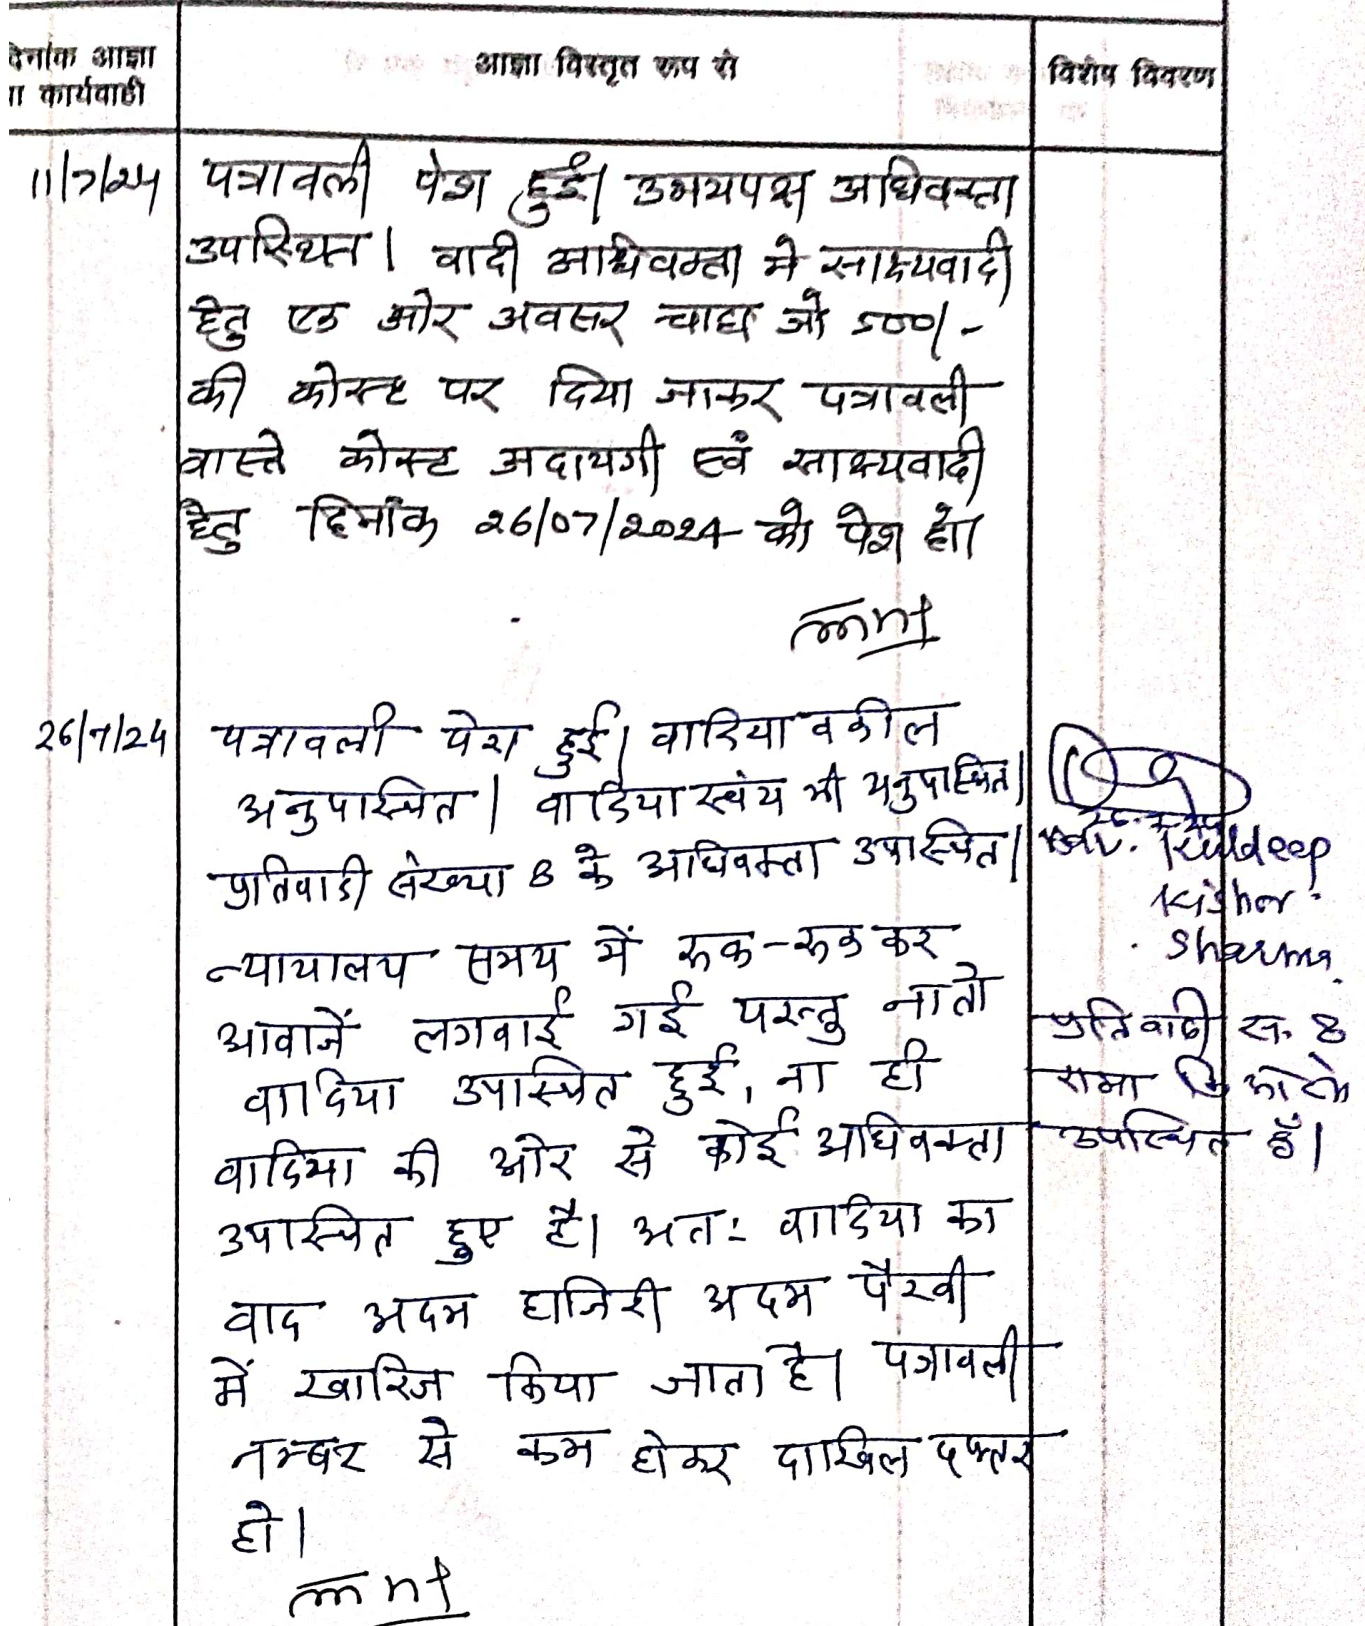 दिनांक आज्ञा
या कार्यवाही
आज्ञा विस्तृत रूप से
विशेष विवरण
11/7/24
पत्रावली पेश हुई। उभयपक्ष अधिवक्ता
उपस्थित। वादी अधिवक्ता ने साक्ष्यवादी
हेतु एक ओर अवसर चाहा जो 500/-
की कोस्ट पर दिया जाकर पत्रावली
वास्ते कोस्ट अदायगी एवं साक्ष्यवादी
हेतु दिनांक 26/07/2024 को पेश हो।
26/7/24
पत्रावली पेश हुई। वादिया वकील
अनुपस्थित। वादिया स्वंय भी अनुपस्थित।
प्रतिवादी संख्या 8 के अधिवक्ता उपस्थित।
न्यायालय समय में रूक-रूक कर
आवाजें लगवाई गई परन्तु ना तो
वादिया उपस्थित हुई, ना ही
वादिया की ओर से कोई अधिवक्ता
उपस्थित हुए है। अतः वादिया का
वाद अदम हाजिरी अदम पैरवी
में खारिज किया जाता है। पत्रावली
नम्बर से कम होकर दाखिल दफ्तर
हो।
Kuldeep
Kishor
Sharma
प्रतिवादी सं. 8
उपस्थित है।